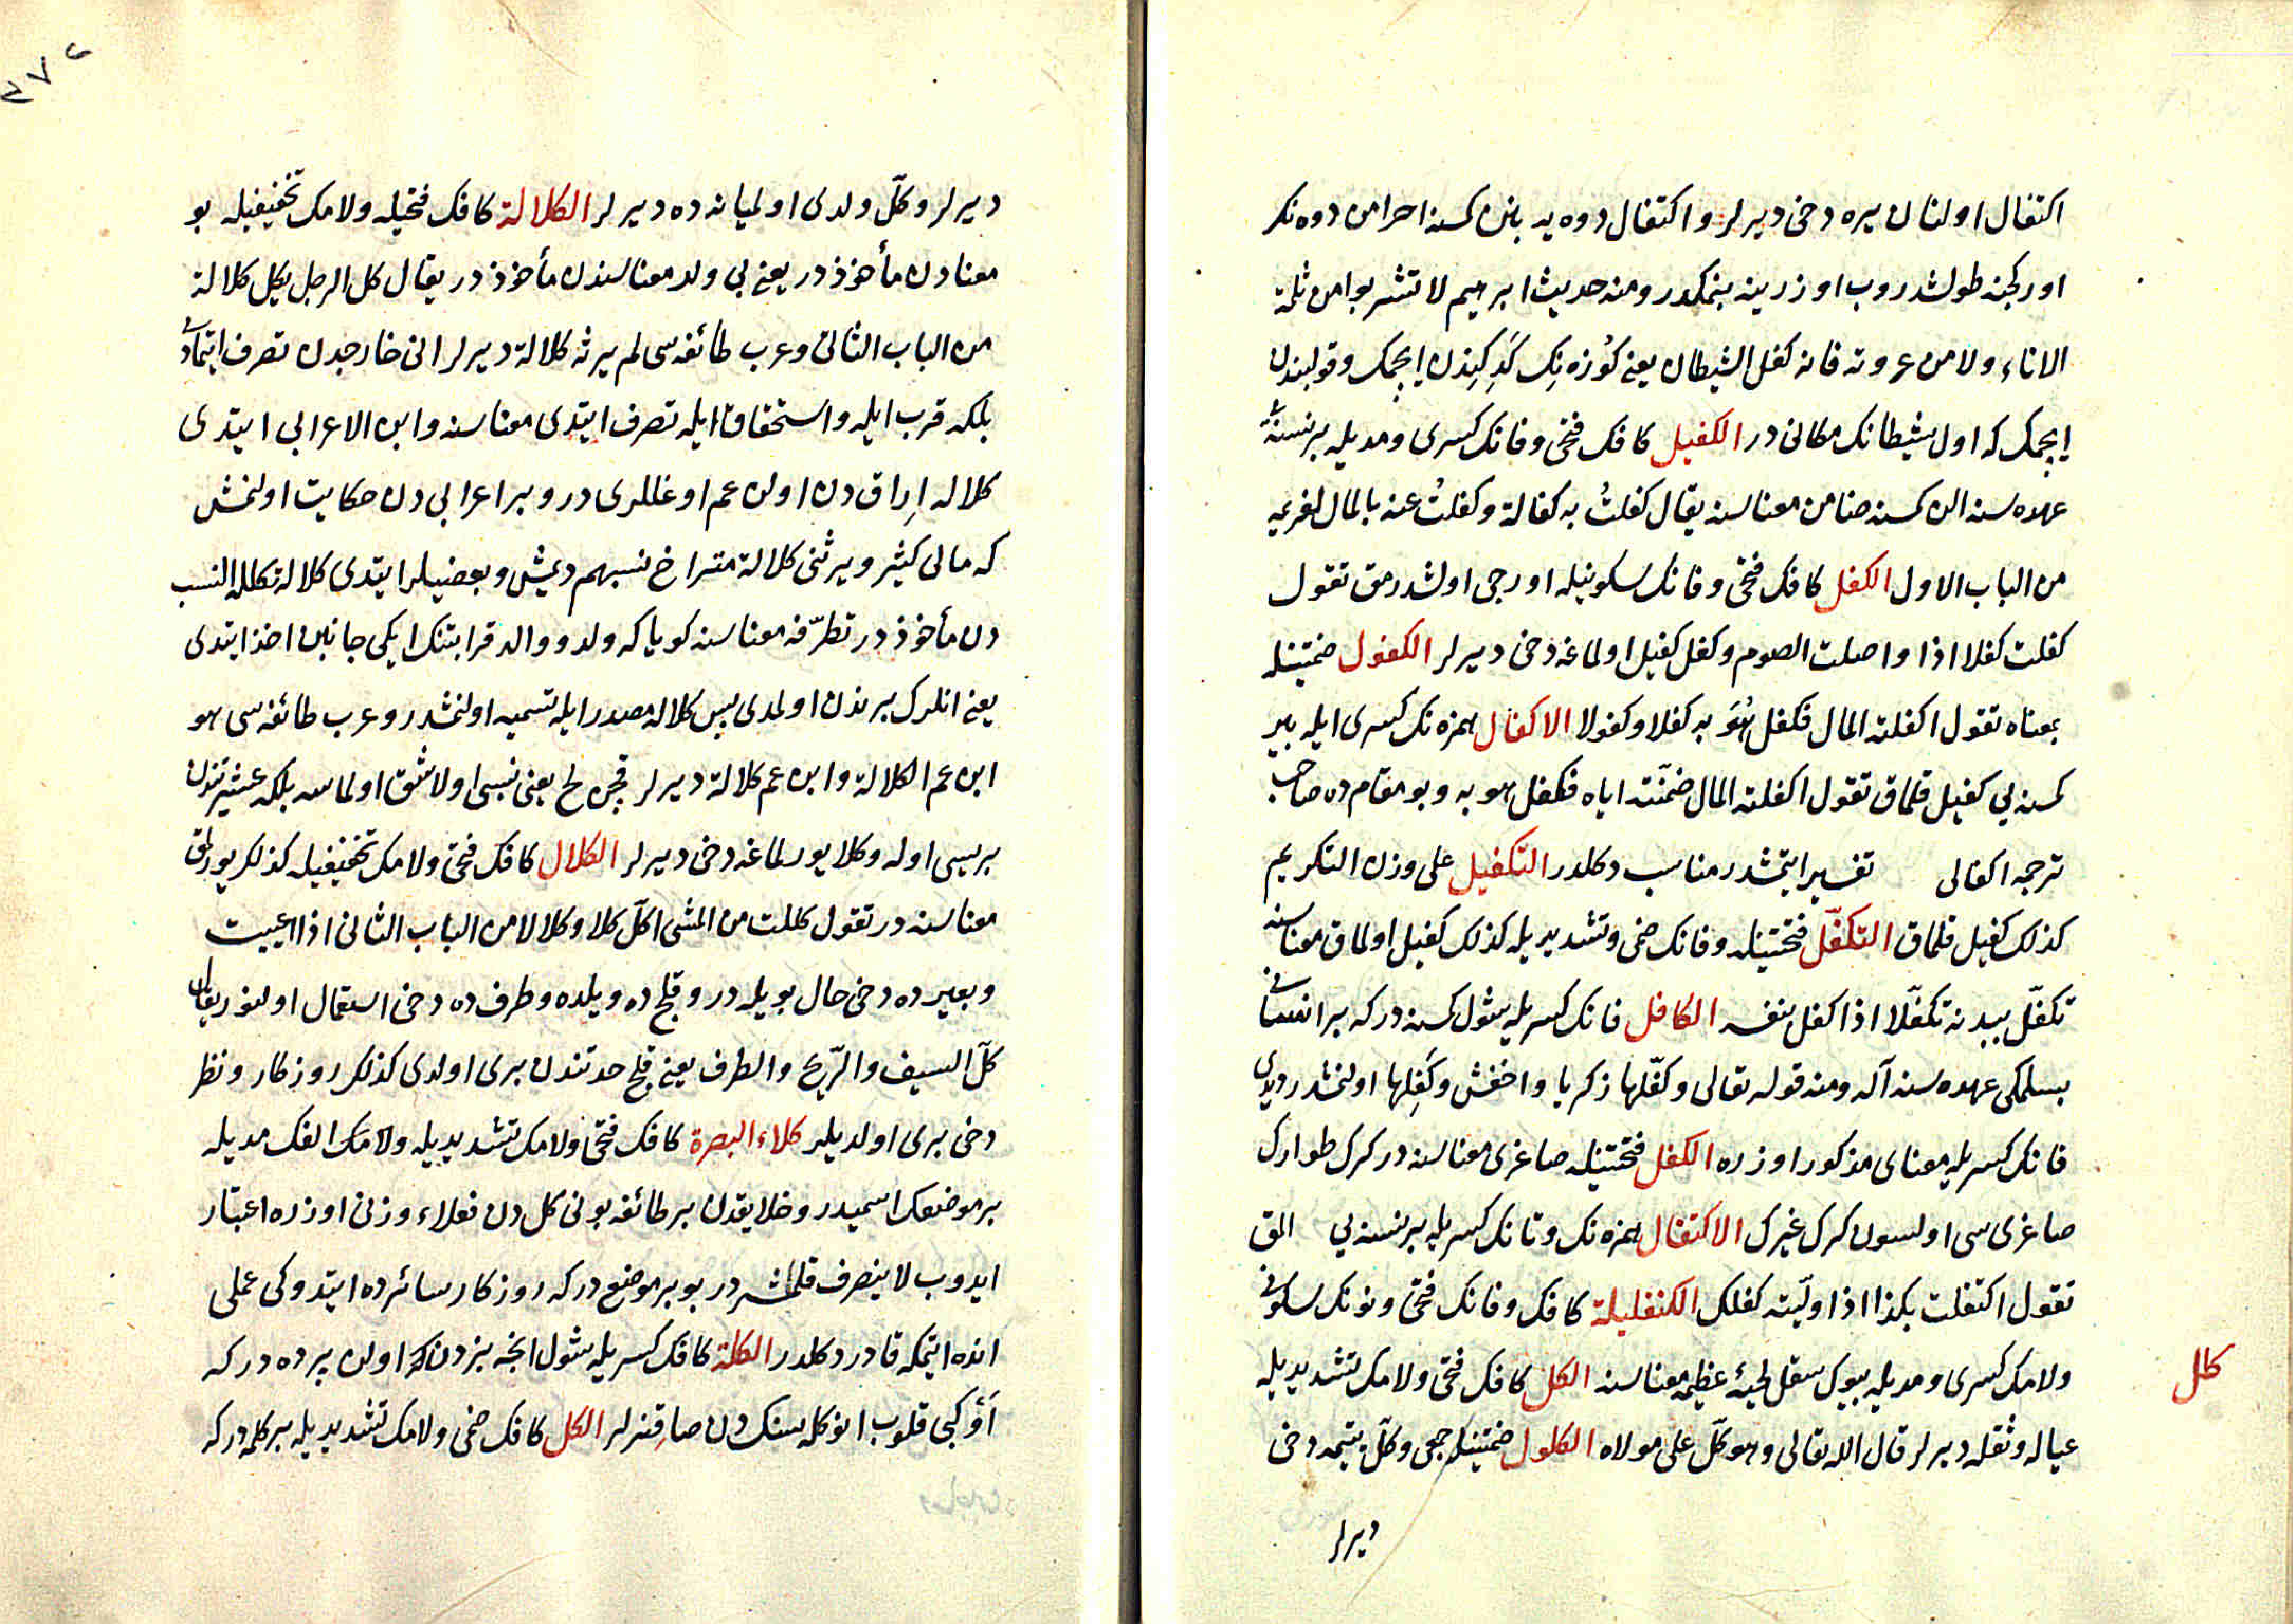 اكتفال اولنان یره دخی دیرلر و اكتفال دوه یه بنن كمسنه احرامن دوه نك
اوركجنه طولشدروب اوزرینه بنمكدر ومنه حدیث ابرهیم لا تشربوا من ثلمة
الاناء ولا من عروته فانه كفل الشیطان یعنی كوزه نك كدكیندن ایچمك وقولبندن
ایچمك كه اول شیطانك مكانی در الكفیل كافك فتحی وفانك كسری ومدیله بر نسنه یی
عهده سنه الن كمسنه ضامن معناسنه یقال كفلت به كفالة وكفلت عنه بالمال لغریمه
من الباب الاول الكفل كافك فتحی وفانك سكونیله اورجی اولشدرمق تقول
كفلت كفلا اذا واصلت الصوم وكفل كفیل اولماغه دخی دیرلر الكفول ضمتینله
بمعناه تقول اكفلته المال فكفل هو به كفلا وكفولا الاكفال همزه نك كسری ایله بیر
كمسنه یی كفیل قلماق تقول اكفلته المال ضمنته ایاه فكفل هو به وبو مقام ده صاحب
ترجمه اكفالی تفسیر ایتمشدر مناسب دكلدر التكفیل علی وزن التكریم
كذلك كفیل قلماق التكفّل فتحتینله وفانك ضمی وتشدیدیله كذلك كفیل اولماق معناسنه
تكفّل ببدنه تكفّلا اذا كفل بنفسه الكافل فانك كسریله شول كمسنه در كه بر انسانی
بسلمكی عهده سنه آله ومنه قوله تعالی وكفّلها زكریا واخفش وكفِلها اولنمشدر دیدی
فانك كسریله معنای مذكور اوزره الكفل فتحتینله صاغری معناسنه در كرك طوارك
صاغری سی اولسون كرك غیرك الاكتفال همزه نك وتانك كسریله بر نسنه یی المق
تقول اكتفلت بكذا اذا ولّیته كفلك الكنفلیلة كافك وفانك فتحی ونونك سكونی
ولامك كسری ومدیله بیوك سقل لحیة عظیمه معناسنه الكل كافك فتحی ولامك تشدیدیله
كلل
عیاله وثقله دیرلر قال الله تعالی وهو كلّ علی مولاه الكلول ضمتینله جمعی وكلّ یتیمه دخی
دیرلر
دیرلر وكلّ ولدی اولمیانه ده دیرلر الكلالة كافك فتحیله ولامك تخفیفیله بو
معنادن مأخوذدر یعنی بی ولد معناسندن مأخوذدر یقال كل الرجل یكل كلالة
من الباب الثانی وعرب طائفه سی لم یرثه كلالة دیرلر انی خارجدن تصرف ایتمادی
بلكه قرب ایله واستحقاق ایله تصرف ایتدی معناسنه وابن الاعرابی ایتدی
كلاله ایراق دن اولن عم اوغللری در وبر اعرابی دن حكایت اولنمش
كه مالی كثیر ویرثنی كلالة متراخ نسبهم دیمش وبعضیلر ایتدی كلالة تكلله النسب
دن مأخوذدر تطرّفه معناسنه كویا كه ولد ووالد قرابتنك ایكی جانبن اخذ ایتدی
یعنی انلرك برندن اولمدی پس كلاله مصدر ایله تسمیه اولنمشدر وعرب طائفه سی هو
ابن عم الكلالة وابن عم كلالة دیرلر قچن لح یعنی نسبی اولاشق اولماسه بلكه عشیرتندن
بریسی اوله وكلا یورلماغه دخی دیرلر الكلال كافك فتحی ولامك تخفیفیله كذلك یورلمق
معناسنه در تقول كللت من المشی اكلّ كلا وكلالا من الباب الثانی اذا اعییت
وبعیرده دخی حال بویله در وقلج ده ویلده وطرف ده دخی استعمال اولنور یقال
كلّ السیف والرّیح والطرف یعنی قلج حدتندن بری اولدی كذلك روزكار ونظر
دخی بری اولدیلر كلاء البصرة كافك فتحی ولامك تشدیدیله ولامك الفك مدیله
بر موضعك اسمیدر وخلایقدن بر طائفه بونی كل دن فعلاء وزنی اوزره اعتبار
ایدوب لا ینصرف قلمشلردر بو بر موضعدر كه روزكار سائرده ایتدوكی عملی
انده ایتمكه قادر دكلدر الكلة كافك كسریله شول انجه بزدن اولن پرده در كه
أو كبی قلوب انوكله سنك دن صاقنرلر الكل كافك ضمی ولامك تشدیدیله بر كلمه در كه